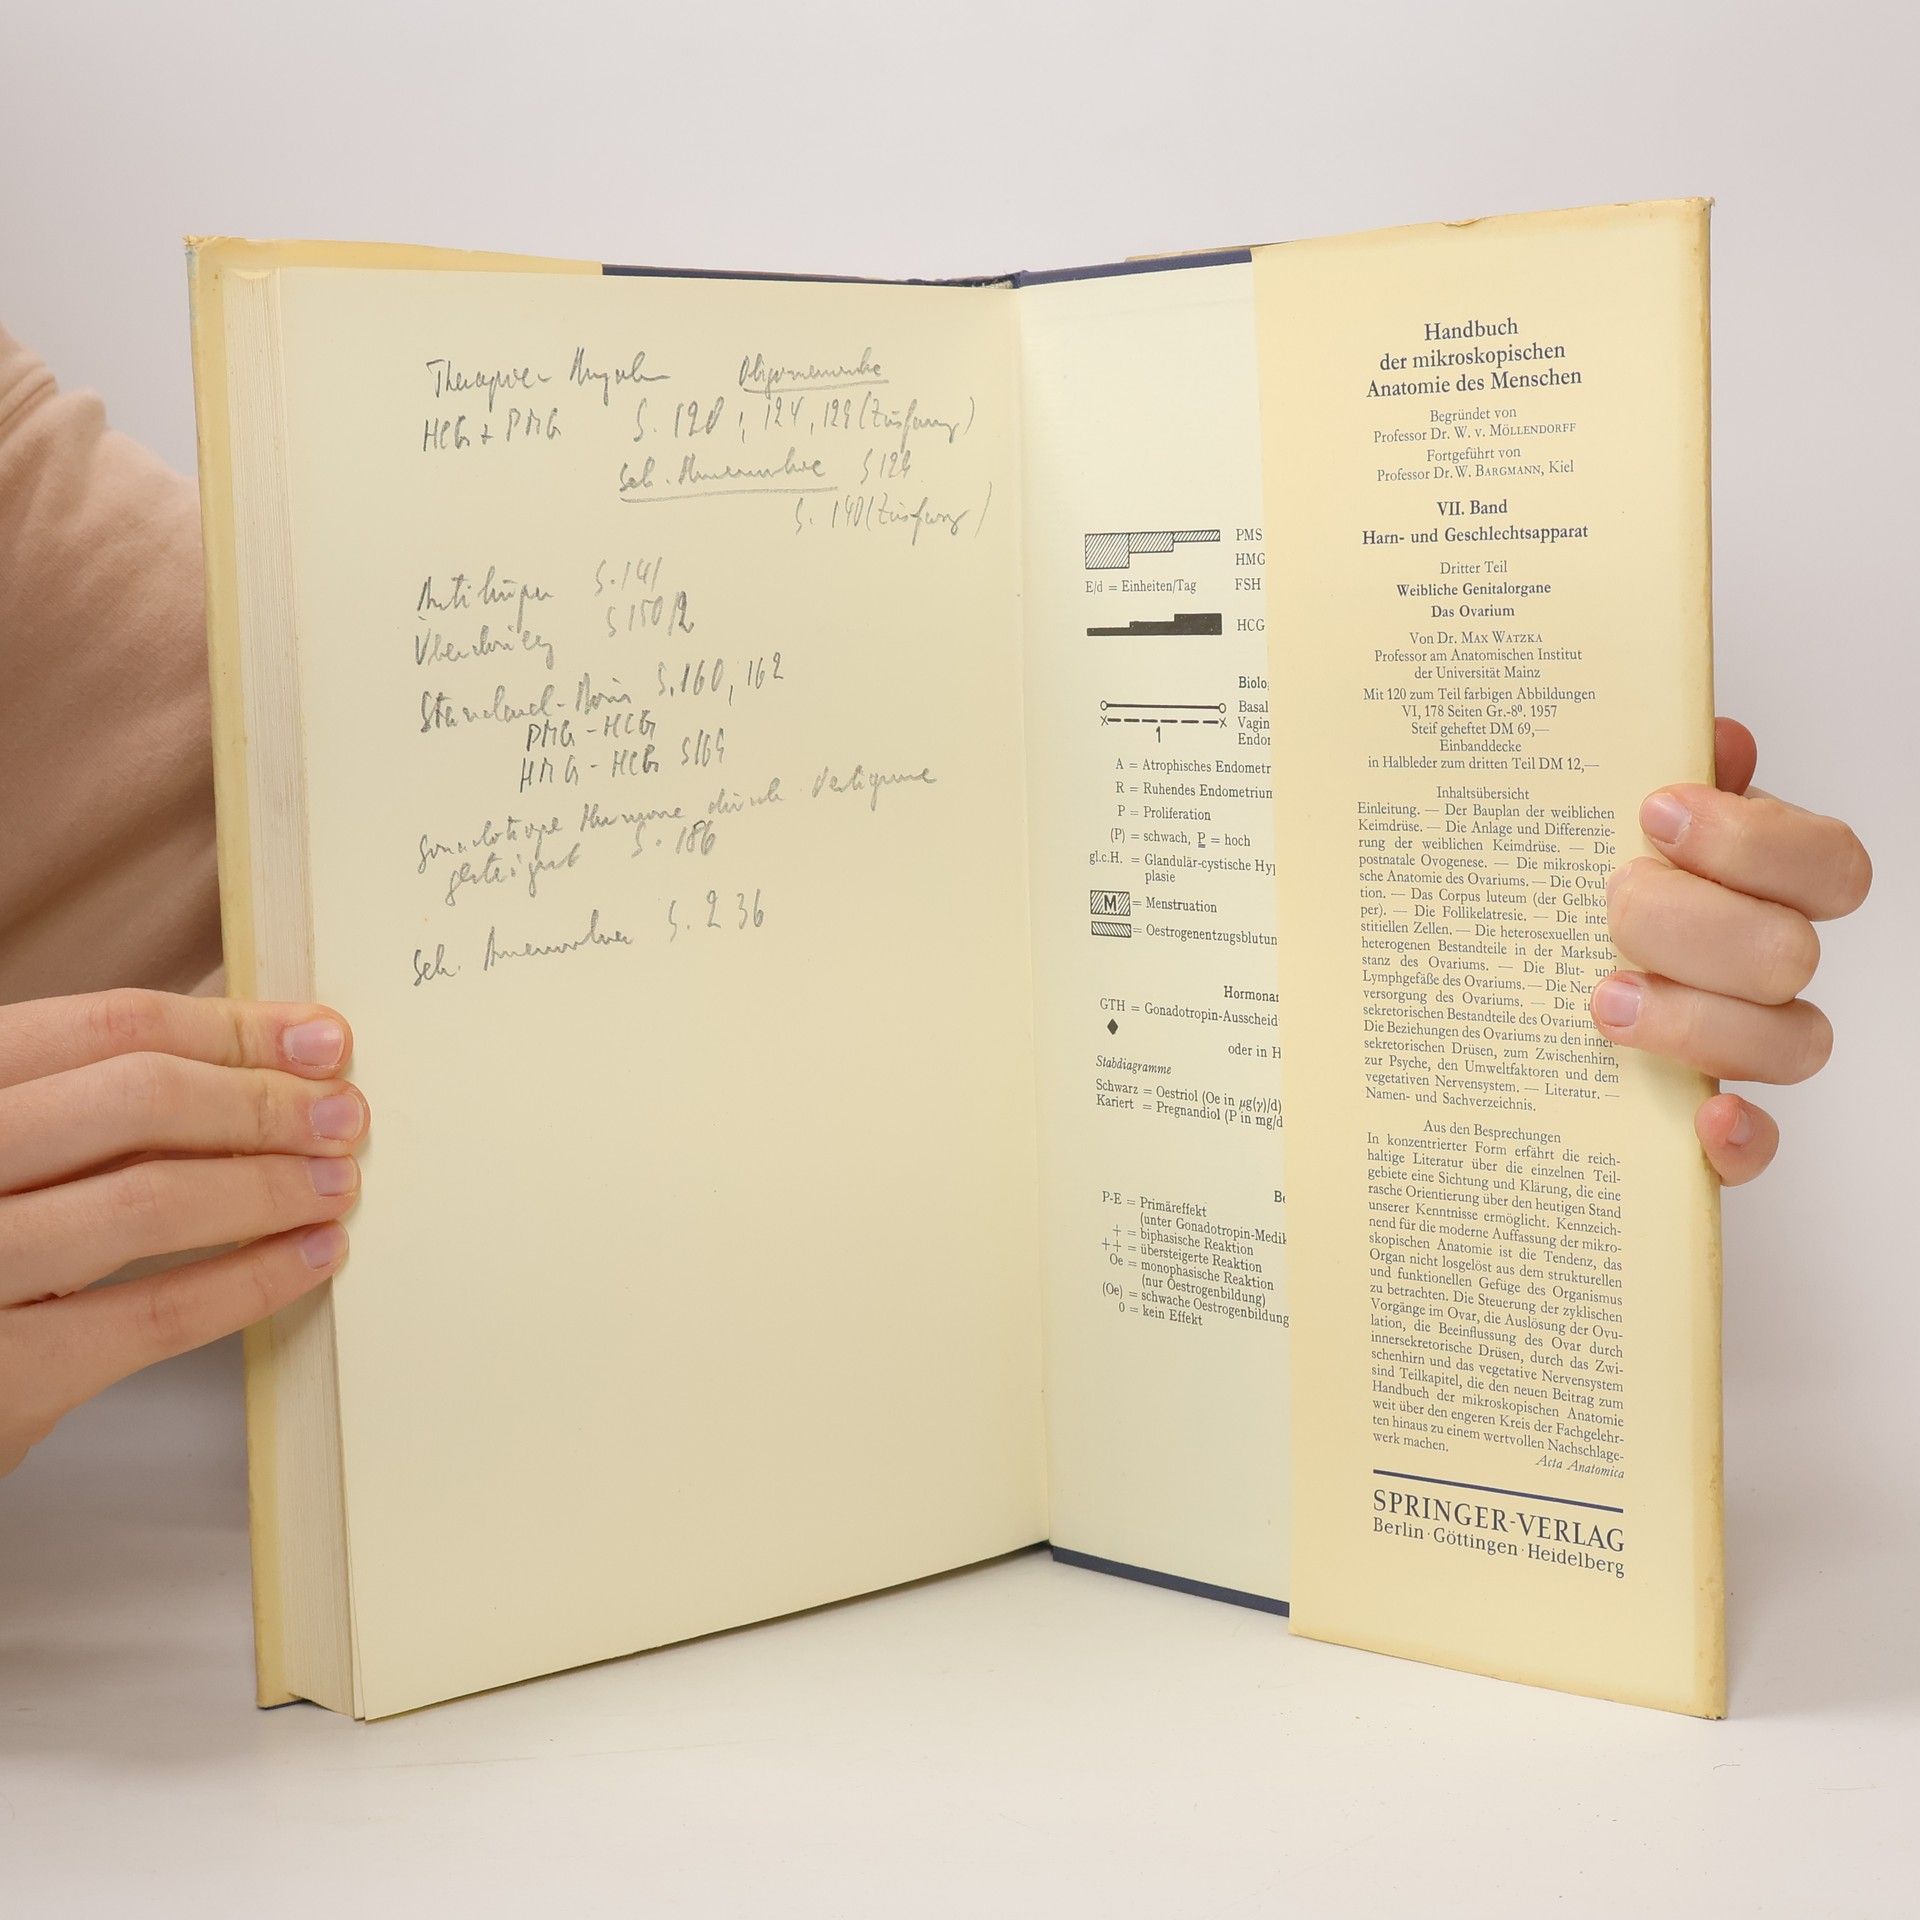 Therapie-
HCG + PMG S. 120, 124, 129 (Zusfung)
Sek. Amenorrhoe S 124
S. 140 (Zusfung)
Antikörper S. 141
S 150/2
Standard-Dosis S. 160, 162
PMG - HCG
HMG - HCG S 164
Gonadotrope Hormone durch
gesteigert S. 186
Sek. Amenorrhoe S. 236
PMS
HMG
E/d = Einheiten/Tag FSH
HCG
Biolo
Basal
Vagin
1 Endor
A = Atrophisches Endometr
R = Ruhendes Endometrium
P = Proliferation
(P) = schwach, P = hoch
gl.c.H. = Glandulär-cystische Hyp
plasie
M = Menstruation
= Oestrogenentzugsblutun
Hormonan
GTH = Gonadotropin-Ausscheid
oder in H
Stabdiagramme
Schwarz = Oestriol (Oe in µg(γ)/d)
Kariert = Pregnandiol (P in mg/d
Be
P-E = Primäreffekt
(unter Gonadotropin-Medik
+ = biphasische Reaktion
++ = übersteigerte Reaktion
Oe = monophasische Reaktion
(nur Oestrogenbildung)
(Oe) = schwache Oestrogenbildung
0 = kein Effekt
Handbuch
der mikroskopischen
Anatomie des Menschen
Begründet von
Professor Dr. W. v. MÖLLENDORFF
Fortgeführt von
Professor Dr. W. BARGMANN, Kiel
VII. Band
Harn- und Geschlechtsapparat
Dritter Teil
Weibliche Genitalorgane
Das Ovarium
Von Dr. MAX WATZKA
Professor am Anatomischen Institut
der Universität Mainz
Mit 120 zum Teil farbigen Abbildungen
VI, 178 Seiten Gr.-8⁰. 1957
Steif geheftet DM 69,—
Einbanddecke
in Halbleder zum dritten Teil DM 12,—
Inhaltsübersicht
Einleitung. — Der Bauplan der weiblichen
Keimdrüse. — Die Anlage und Differenzie-
rung der weiblichen Keimdrüse. — Die
postnatale Ovogenese. — Die mikroskopi-
sche Anatomie des Ovariums. — Die Ovul
tion. — Das Corpus luteum (der Gelbkö
per). — Die Follikelatresie. — Die inte
stitiellen Zellen. — Die heterosexuellen und
heterogenen Bestandteile in der Marksub-
stanz des Ovariums. — Die Blut- und
Lymphgefäße des Ovariums. — Die Ner
versorgung des Ovariums. — Die i
sekretorischen Bestandteile des Ovariums
Die Beziehungen des Ovariums zu den inner-
sekretorischen Drüsen, zum Zwischenhirn,
zur Psyche, den Umweltfaktoren und dem
vegetativen Nervensystem. — Literatur. —
Namen- und Sachverzeichnis.
Aus den Besprechungen
In konzentrierter Form erfährt die reich-
haltige Literatur über die einzelnen Teil-
gebiete eine Sichtung und Klärung, die eine
rasche Orientierung über den heutigen Stand
unserer Kenntnisse ermöglicht. Kennzeich-
nend für die moderne Auffassung der mikro-
skopischen Anatomie ist die Tendenz, das
Organ nicht losgelöst aus dem strukturellen
und funktionellen Gefüge des Organismus
zu betrachten. Die Steuerung der zyklischen
Vorgänge im Ovar, die Auslösung der Ovu-
lation, die Beeinflussung des Ovar durch
innersekretorische Drüsen, durch das Zwi-
schenhirn und das vegetative Nervensystem
sind Teilkapitel, die den neuen Beitrag zum
Handbuch der mikroskopischen Anatomie
weit über den engeren Kreis der Fachgelehr-
ten hinaus zu einem wertvollen Nachschlage-
werk machen.
Acta Anatomica
SPRINGER-VERLAG
Berlin · Göttingen · Heidelberg